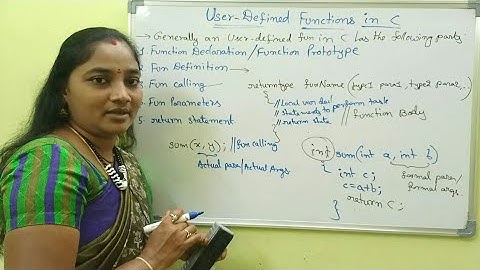 User-Defined Functions in C
→ Generally an User-defined fun in C has the following parts:
1. Function Declaration/Function Prototype
2. Fun Definition →
3. Fun calling
4. Fun Parameters
5. return statement
returntype funName(type1 para1, type2 para2...)
{
//Local var decl
//statements to perform task
//return state
}
//function Body
sum(x, y); //fun calling
Actual para/Actual Args
int sum(int a, int b)
{
int c;
c=a+b;
return c;
}
formal para/
formal args